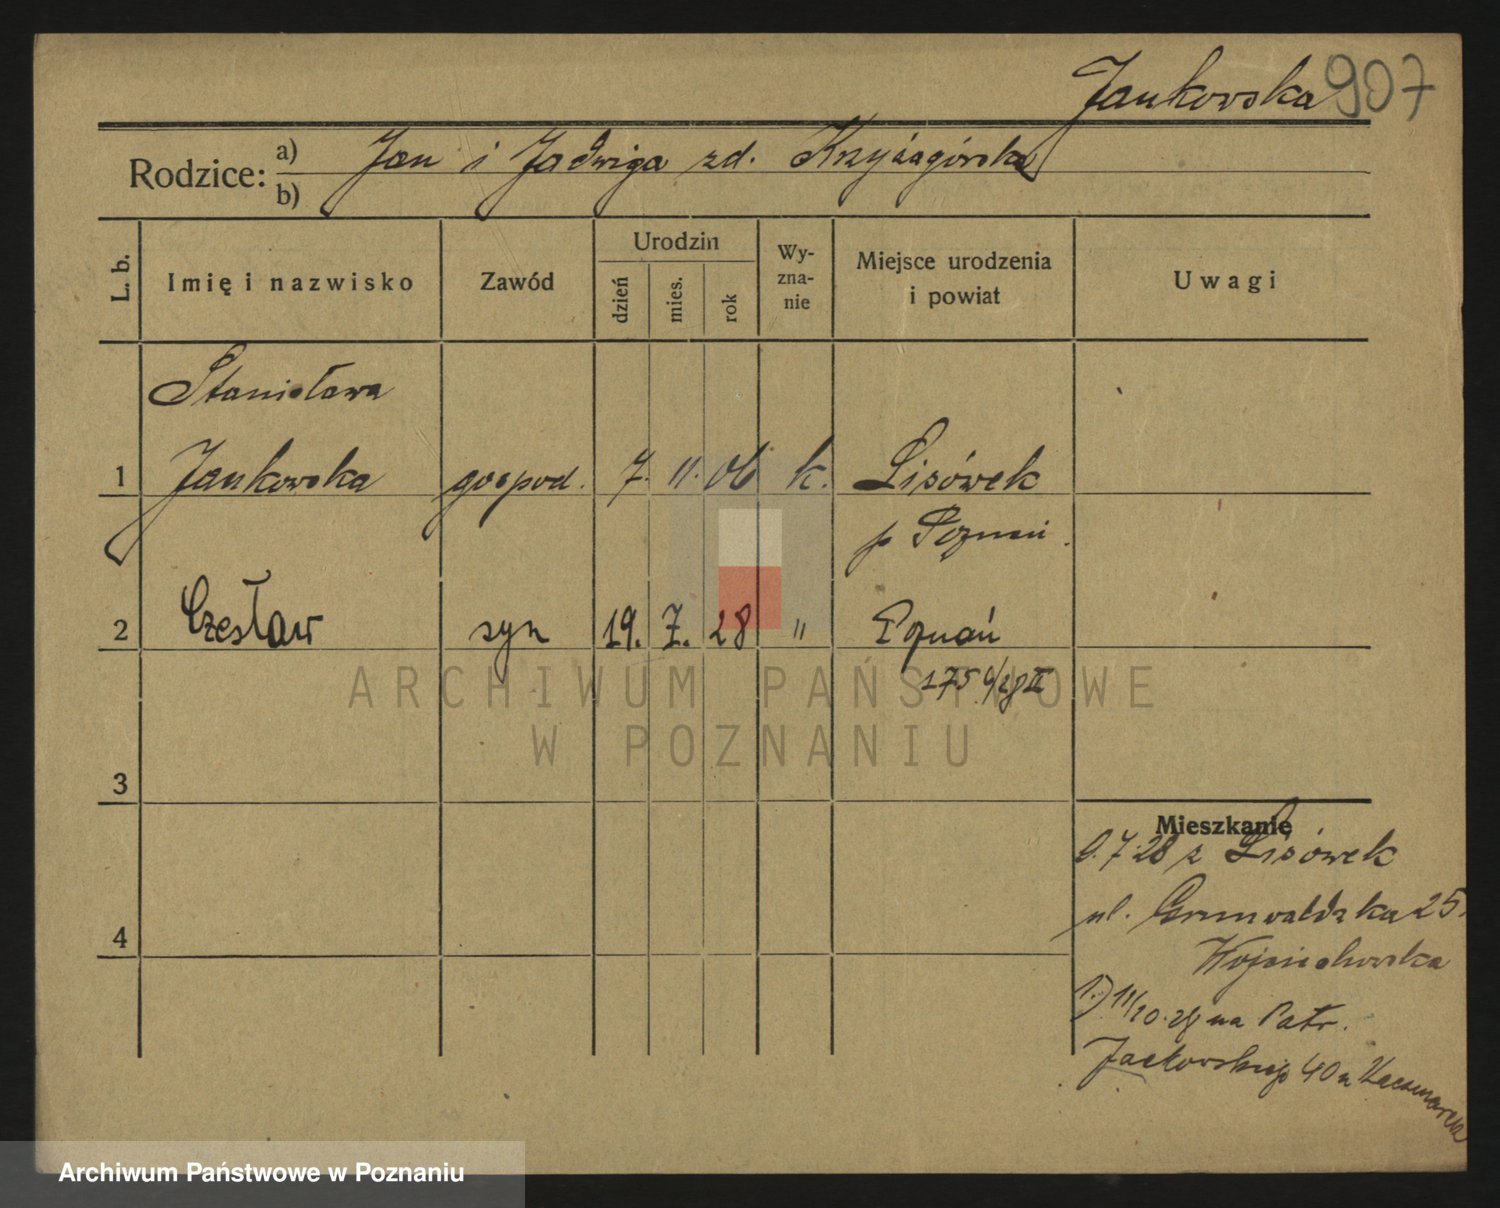 Jankowska 907
Rodzice: a) Jan i Jadwiga zd. Krzyżagórska
b)
L. b.
Imię i nazwisko
Zawód
Urodzin
dzień
mies.
rok
Wy-
zna-
nie
Miejsce urodzenia
i powiat
Uwagi
Stanisława
1 Jankowska gospod. 7. 11. 06 k. Lisówek
p Poznań.
2 Czesław syn 19. 7. 28 " Poznań
175
3
4
Mieszkanie
7.28 z Lisówek
ul. Grunwaldzka 25.
Wojciechowska
1.) 11/10.28 na Patr.
Jackowskiego 40 u Kaczmarek
ARCHIWUM PAŃSTWOWE
W POZNANIU
Archiwum Państwowe w Poznaniu